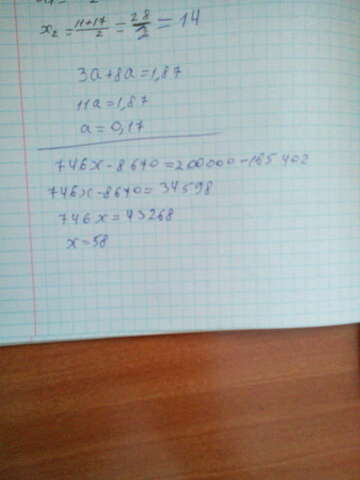 x₂ = 11+17/2 = 28/2 = 14
3a+8a=1,87
11a=1,87
a=0,17
746x-8670=200000-165402
746x-8670=34598
746x=43268
x=58